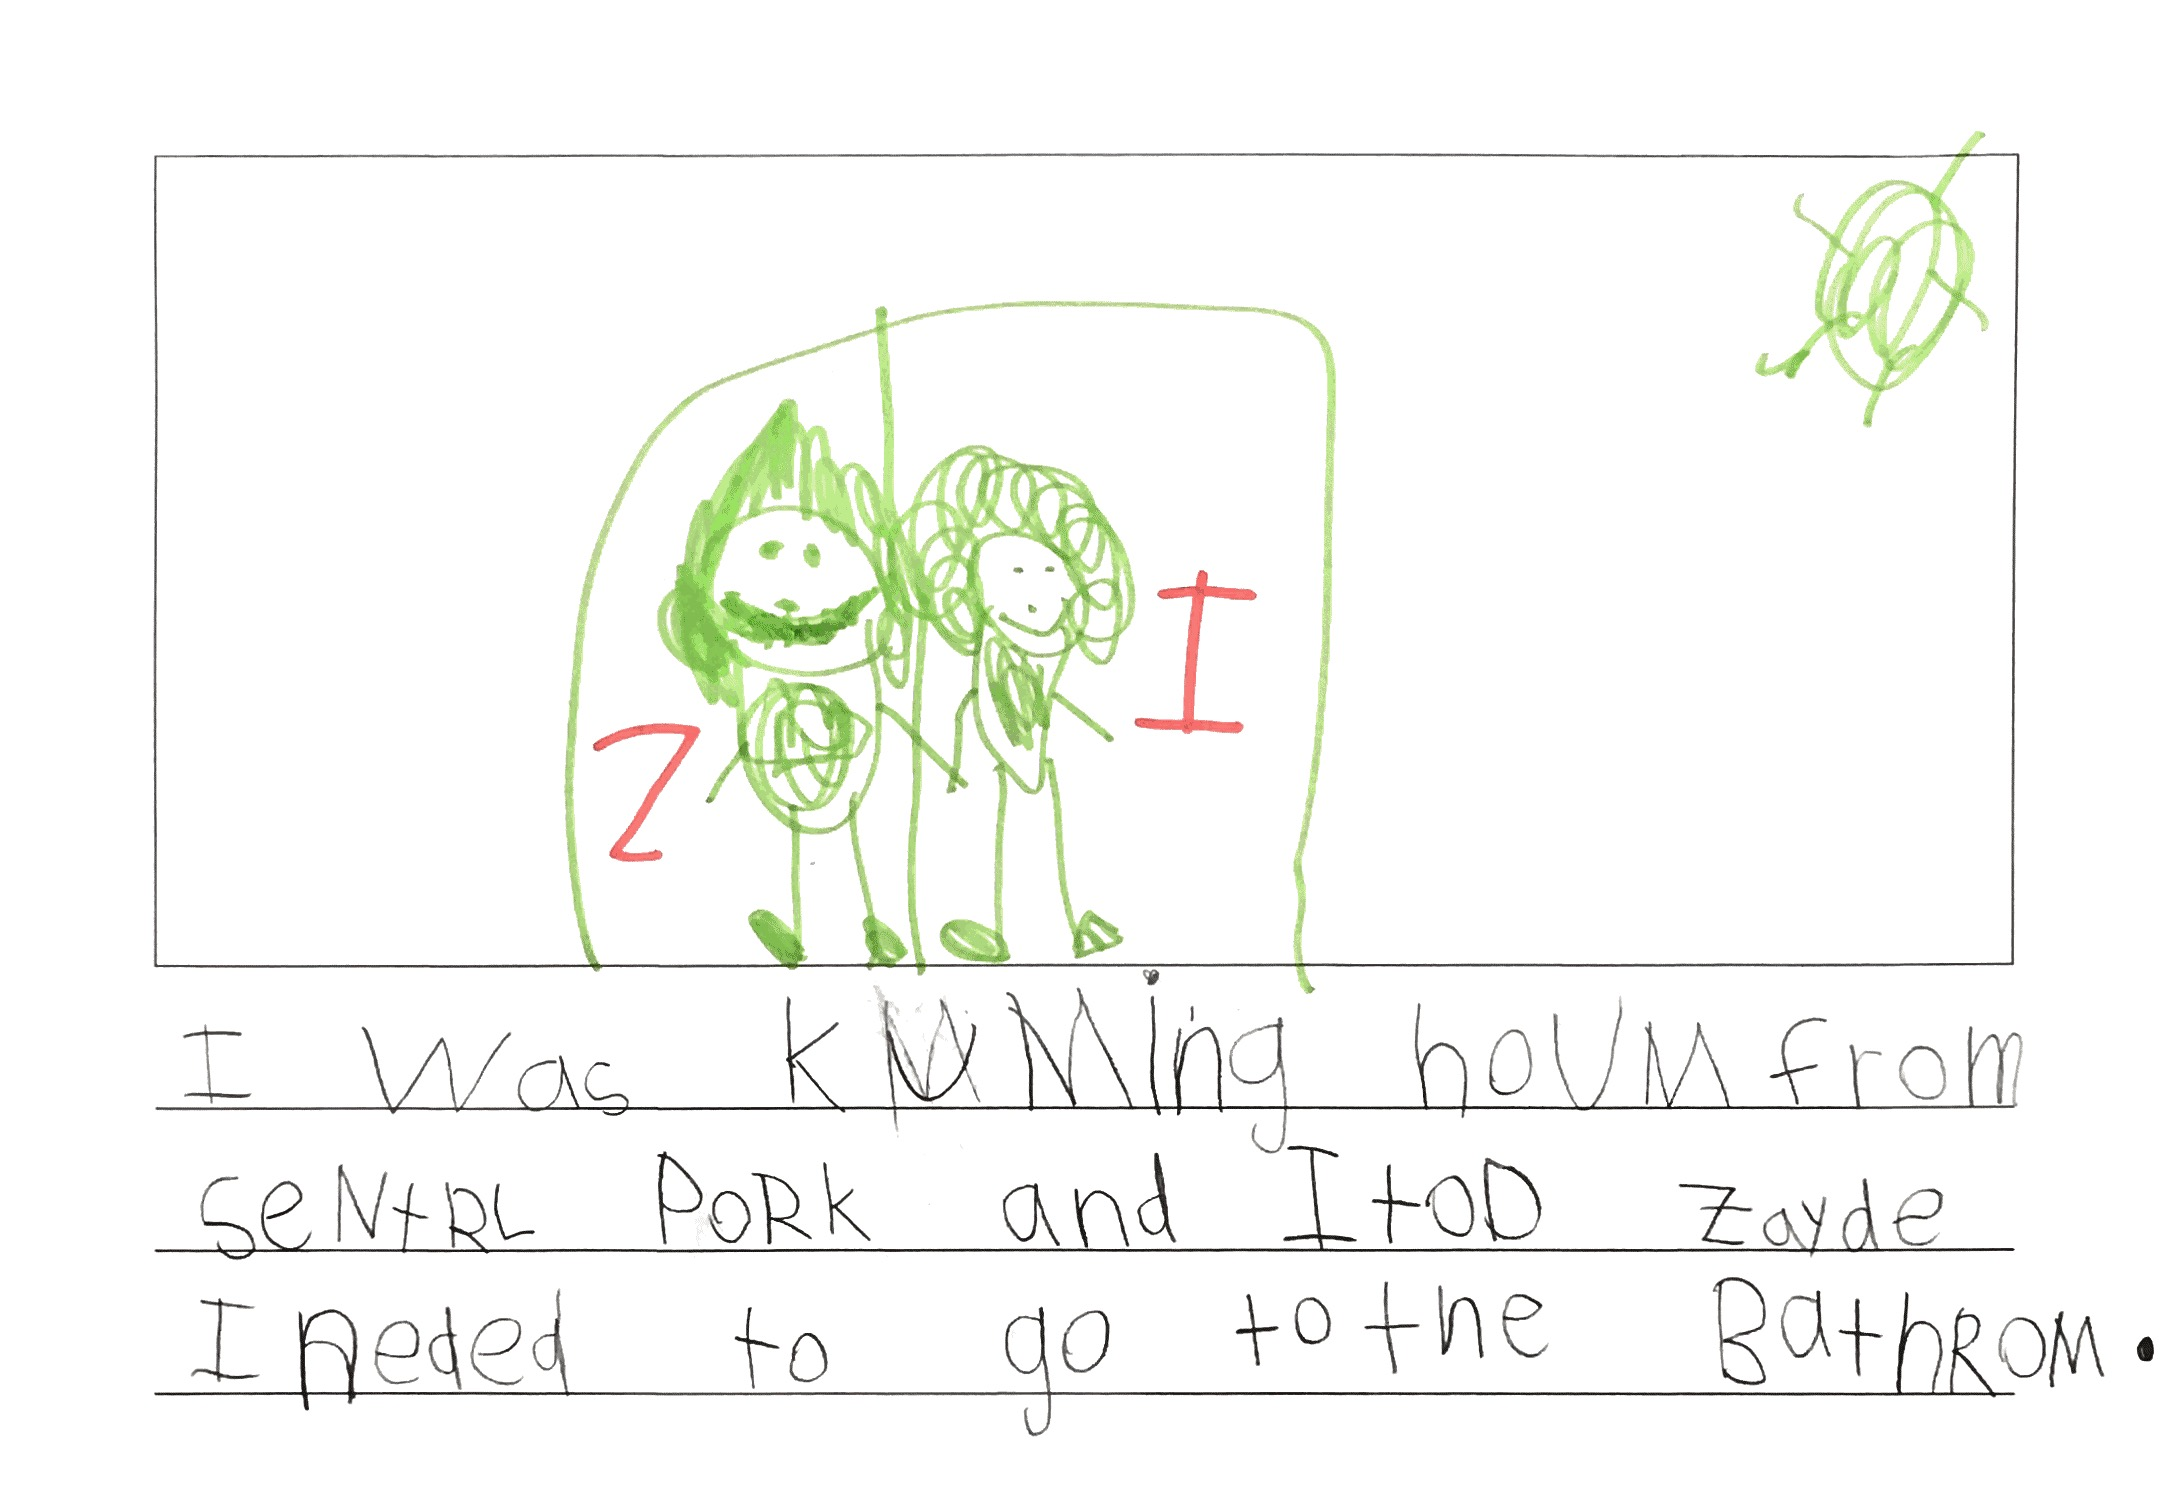 Z I
I Was KUMMing hoUM from
SeNtRL PoRK and I toD Zayde
I neded to go to the BathROM.